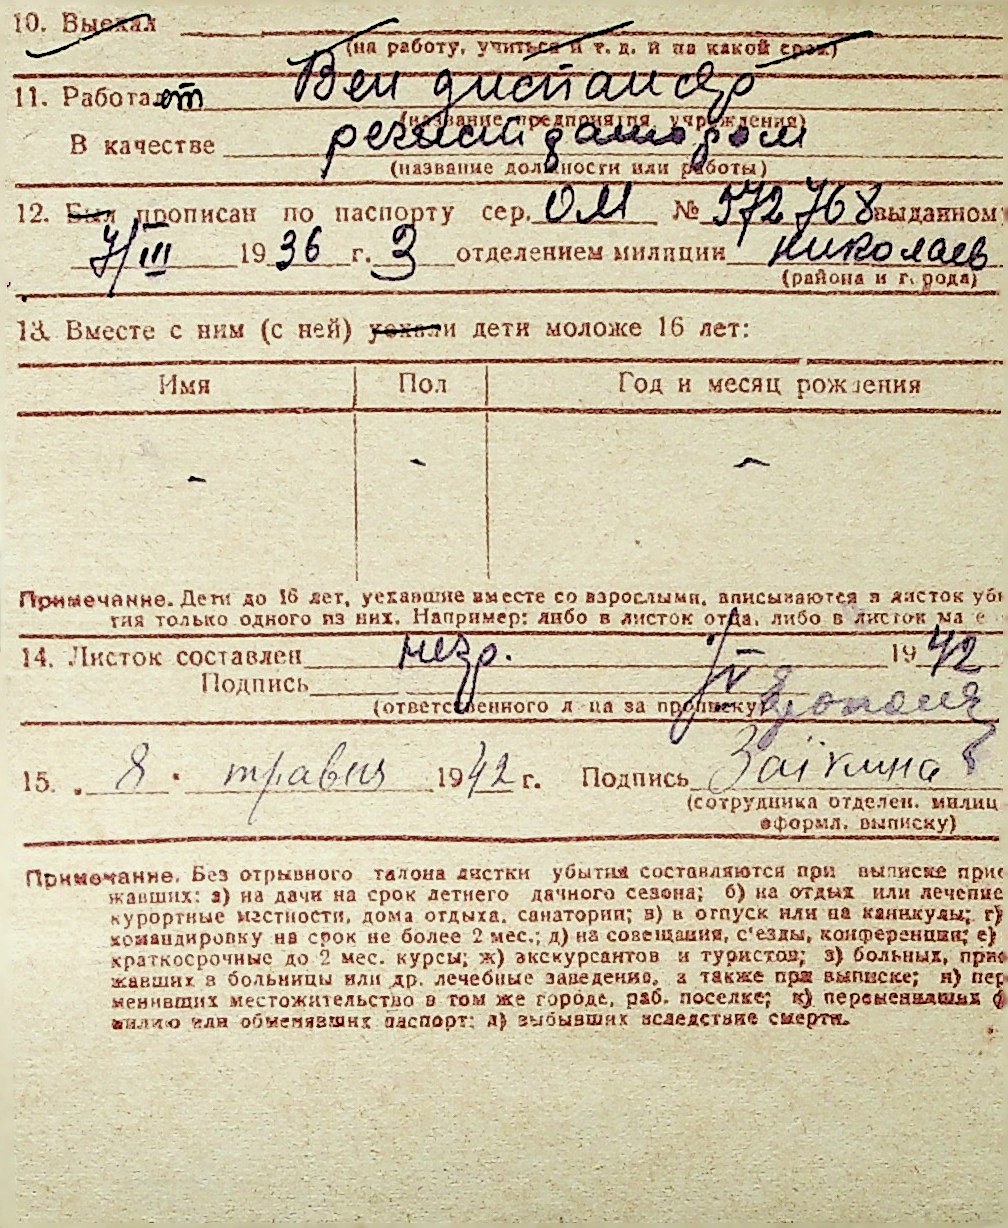 10. Выехал
(на работу, учиться и т. д. и на какой срок)
11. Работает Вен диспансер
(название предприятия, учреждения)
В качестве регистратором
(название должности или работы)
12. Был прописан по паспорту сер. ОМ № 572768 выданном
7/III 1936 г. 3 отделением милиции Николаев
(района и города)
13. Вместе с ним (с ней) уехали дети моложе 16 лет:
Имя Пол Год и месяц рождения
- - -
Примечание. Дети до 16 лет, уехавшие вместе со взрослыми, вписываются в листок убы
тия только одного из них. Например: либо в листок отца, либо в листок ма е
14. Листок составлен 7/V 1942
Подпись
(ответственного лица за прописку)
15. 8 травня 1942 г. Подпись Заїкина
(сотрудника отделен. милиц
оформл. выписку)
Примечание. Без отрывного талона листки убытия составляются при выписке прие
жавших: а) на дачи на срок летнего дачного сезона; б) на отдых или лечение
курортные местности, дома отдыха, санатории; в) в отпуск или на каникулы; г)
командировку на срок не более 2 мес.; д) на совещания, с'езды, конференции; е)
краткосрочные до 2 мес. курсы; ж) экскурсантов и туристов; з) больных, прие
жавших в больницы или др. лечебные заведения, а также при выписке; и) пер
менивших местожительство в том же городе, раб. поселке; к) переменивших ф
милию или обменявших паспорт; л) выбывших вследствие смерти.